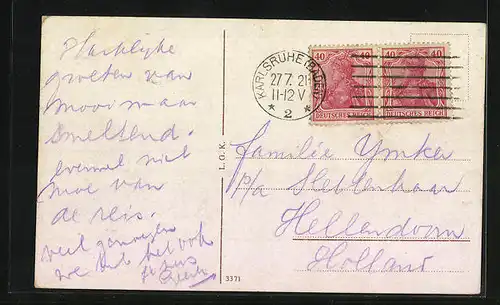 Hartelijke
groeten van
mooi maar
smeltend.
evenmel niet
moe van
de reis.
veel genoegen
we het ook
L.O.K.
3371
KARLSRUHE (BADEN)
27.7.21
11-12 V
* 2 *
40 40
DEUTSCHES REICH
40 40
DEUTSCHES REICH
Familie Ymker
p/a
Hellendoorn
Holland